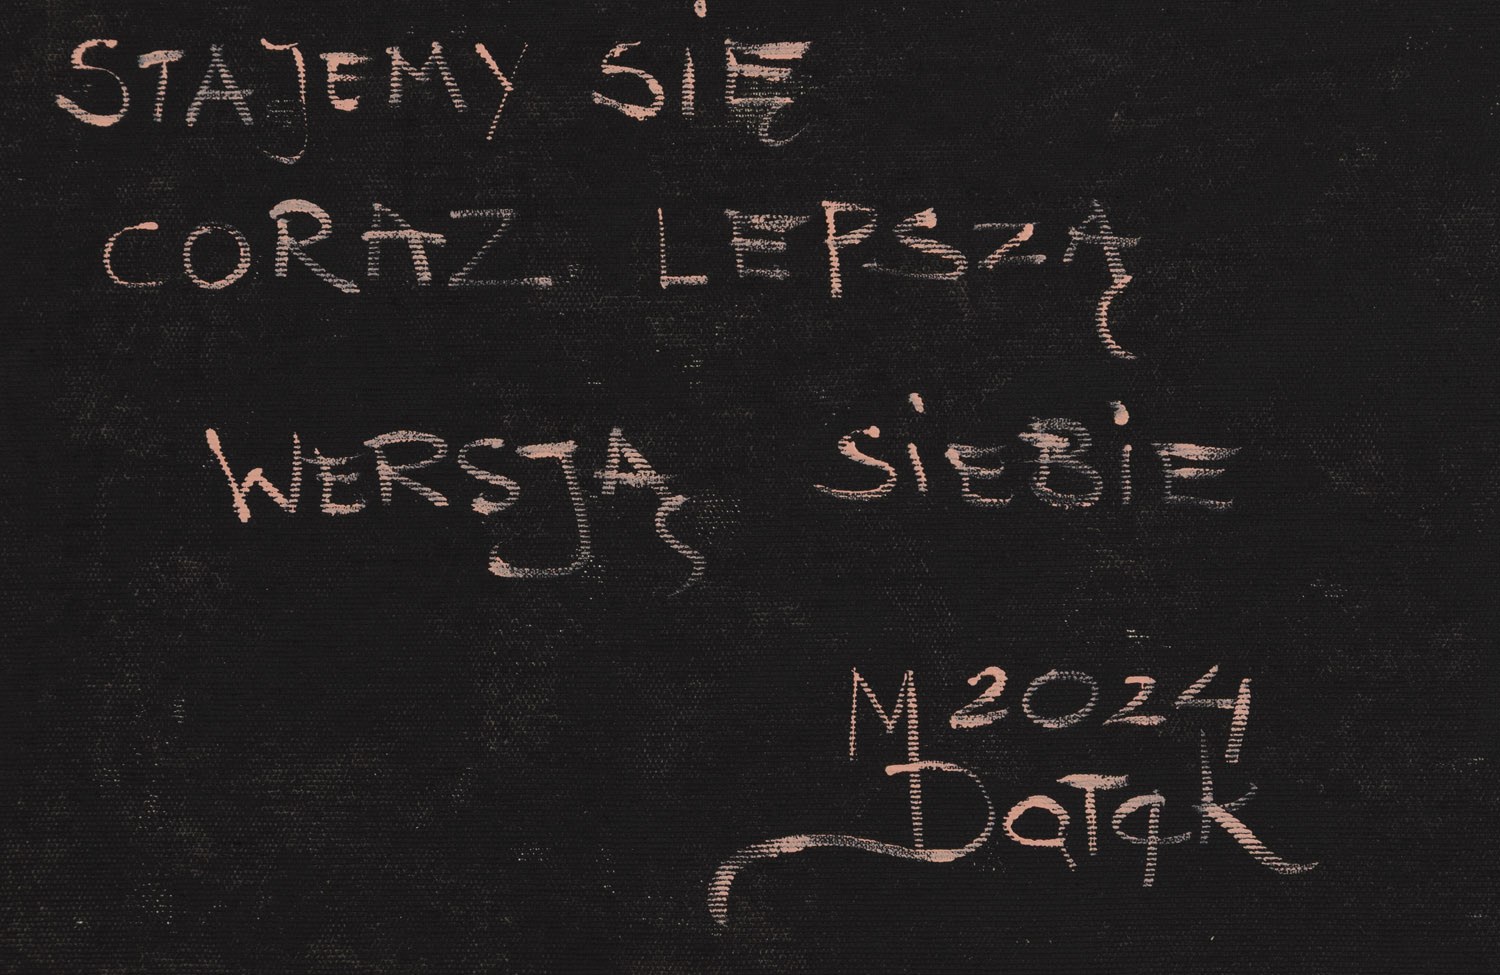 STAJEMY SIĘ
CORAZ LEPSZĄ
WERSJĄ SIEBIE
M 2024
Datak